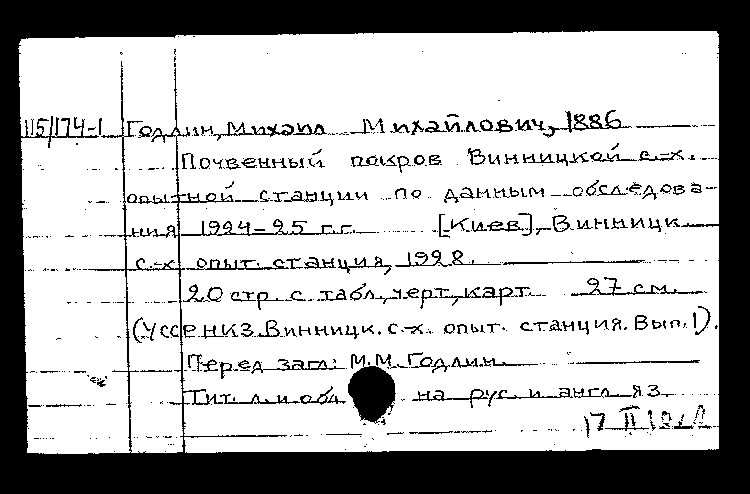 115/174-1 Годлин, Михаил Михайлович, 1886
Почвенный покров Винницкой с.-х.
опытной станции по данным обследова-
ния 1924-25 г.г. [Киев], Винницк.
с.-х опыт. станция, 1928.
20 стр. с табл., черт., карт. 27 см.
(УССР НКЗ. Винницк. с.-х. опыт. станция. Вып. 1).
Перед загл: М.М. Годлин.
Тит. л. и обл на рус. и англ яз.
17 II